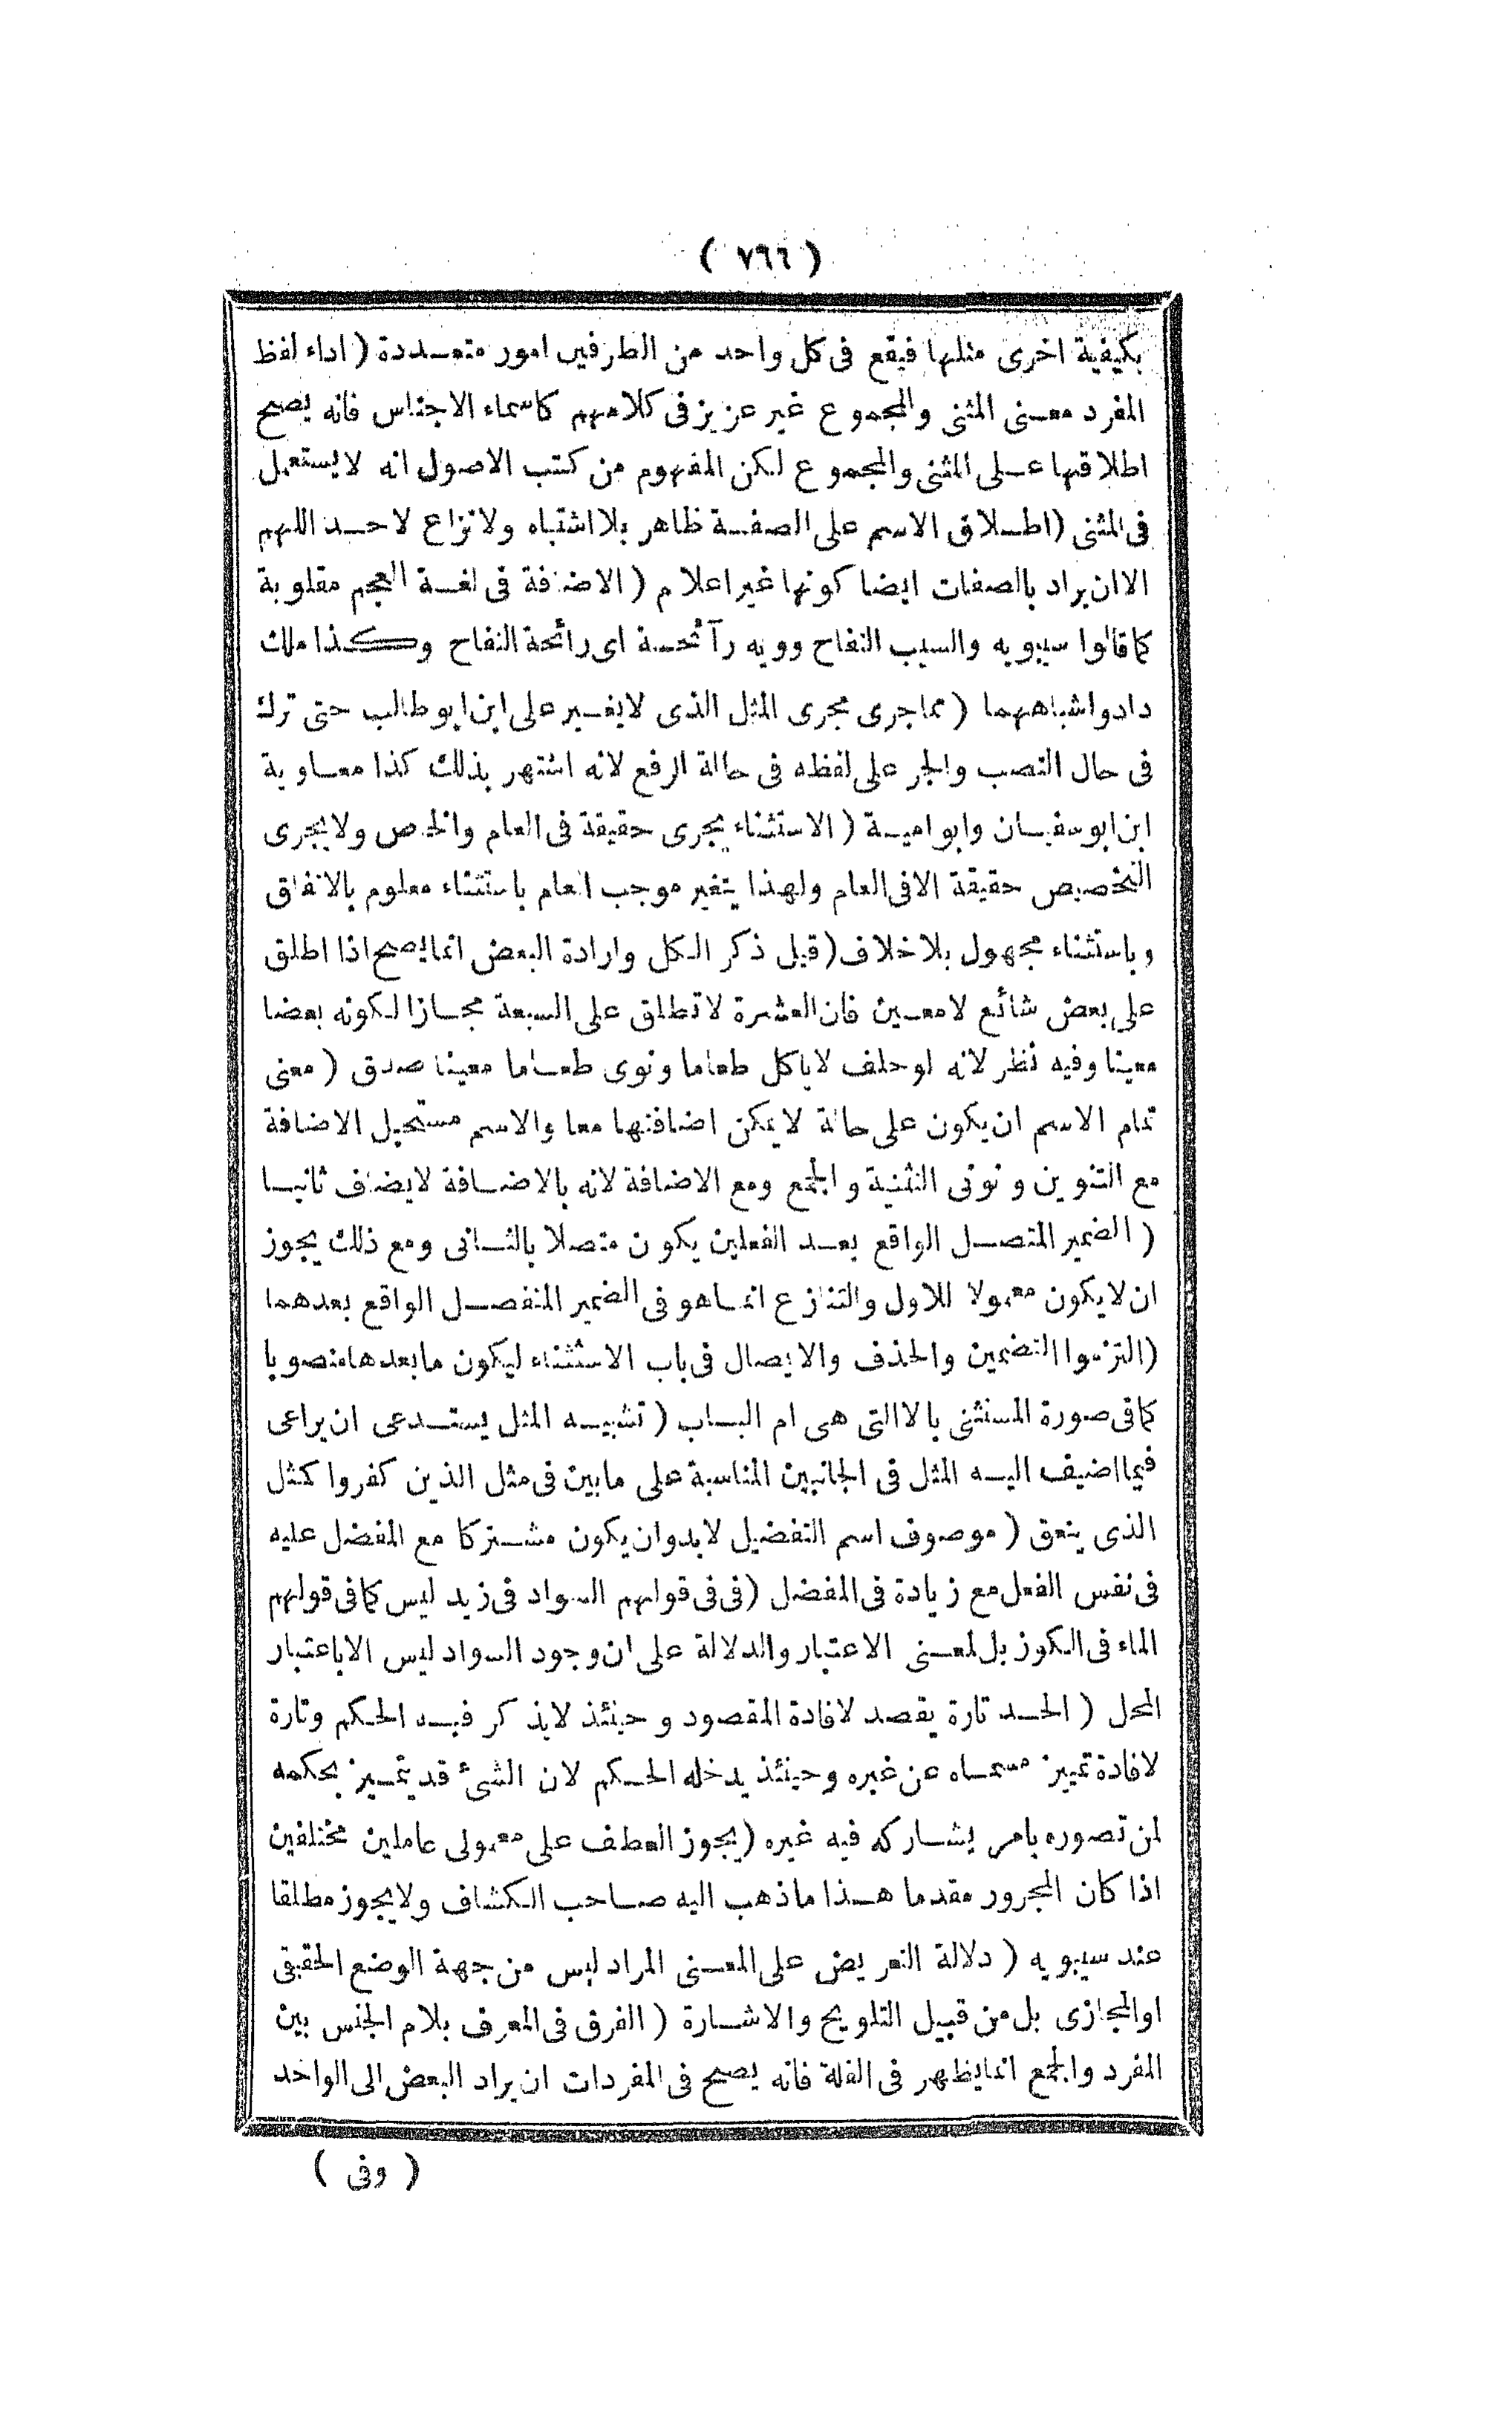 ( ٧٦٦ )
بكيفية اخرى مثلها فيقع فى كل واحد من الطرفين امور متعددة ( اداء لفظ
المفرد معنى المثنى والمجموع غير عزيز فى كلامهم كاسماء الاجناس فانه يصح
اطلاقها على المثنى والمجموع لكن المفهوم من كتب الاصول انه لا يستعمل
فى المثنى ( اطلاق الاسم على الصفة ظاهر بلا اشتباه ولا نزاع لاحد اللهم
الا ان يراد بالصفات ايضا كونها غير اعلام ( الاضافة فى لغة العجم مقلوبة
كما قالوا سيبويه والسيب التفاح وويه رآئحة اى رائحة التفاح وكذا ملك
داد واشباههما ( مما جرى مجرى المثل الذى لا يغير على ابن ابو طالب حتى ترك
فى حال النصب والجر على لفظه فى حالة الرفع لانه اشتهر بذلك كذا معاوية
ابن ابو سفيان وابو امية ( الاستثناء يجرى حقيقة فى العام والخاص ولا يجرى
التخصيص حقيقة الا فى العام ولهذا يتغير موجب العام باستثناء معلوم بالاتفاق
وباستثناء مجهول بلا خلاف ( قيل ذكر الكل وارادة البعض انما يصح اذا اطلق
على بعض شائع لا معين فان العشرة لا تطلق على السبعة مجازا لكونه بعضا
معينا وفيه نظر لانه لو حلف لا ياكل طعاما ونوى طعاما معينا صدق ( معنى
تمام الاسم ان يكون على حالة لا يمكن اضافتها معا والاسم مستحيل الاضافة
مع التنوين ونونى التثنية والجمع ومع الاضافة لانه بالاضافة لا يضاف ثانيا
( الضمير المتصل الواقع بعد الفعلين يكون متصلا بالثانى ومع ذلك يجوز
ان لا يكون معمولا للاول والتنازع انما هو فى الضمير المنفصل الواقع بعدهما
( التزموا التضمين والحذف والايصال فى باب الاستثناء ليكون ما بعدها منصوبا
كما فى صورة المستثنى بالا التى هى ام الباب ( تشبيه المثل يستدعى ان يراعى
فيما اضيف اليه المثل فى الجانبين المناسبة على ما بين فى مثل الذين كفروا كمثل
الذى ينعق ( موصوف اسم التفضيل لا بد وان يكون مشتركا مع المفضل عليه
فى نفس الفعل مع زيادة فى المفضل ( فى فى قولهم السواد فى زيد ليس كما فى قولهم
الماء فى الكوز بل لمعنى الاعتبار والدلالة على ان وجود السواد ليس الا باعتبار
المحل ( الحد تارة يقصد لافادة المقصود وحينئذ لا يذكر فيه الحكم وتارة
لافادة تمييز مسماه عن غيره وحينئذ يدخله الحكم لان الشئ قد يتميز بحكمه
لمن تصوره بامر يشاركه فيه غيره ( يجوز العطف على معمولى عاملين مختلفين
اذا كان المجرور مقدما هذا ما ذهب اليه صاحب الكشاف ولا يجوز مطلقا
عند سيبويه ( دلالة التعريض على المعنى المراد ليس من جهة الوضع الحقيقى
او المجازى بل من قبيل التلويح والاشارة ( الفرق فى المعرف بلام الجنس بين
المفرد والجمع انما يظهر فى القلة فانه يصح فى المفردات ان يراد البعض الى الواحد
( وفى )